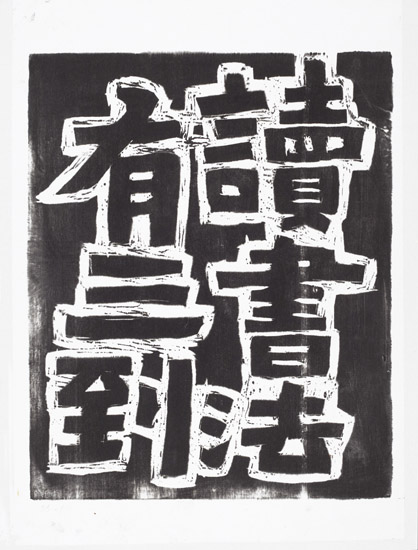 讀書法
有三到